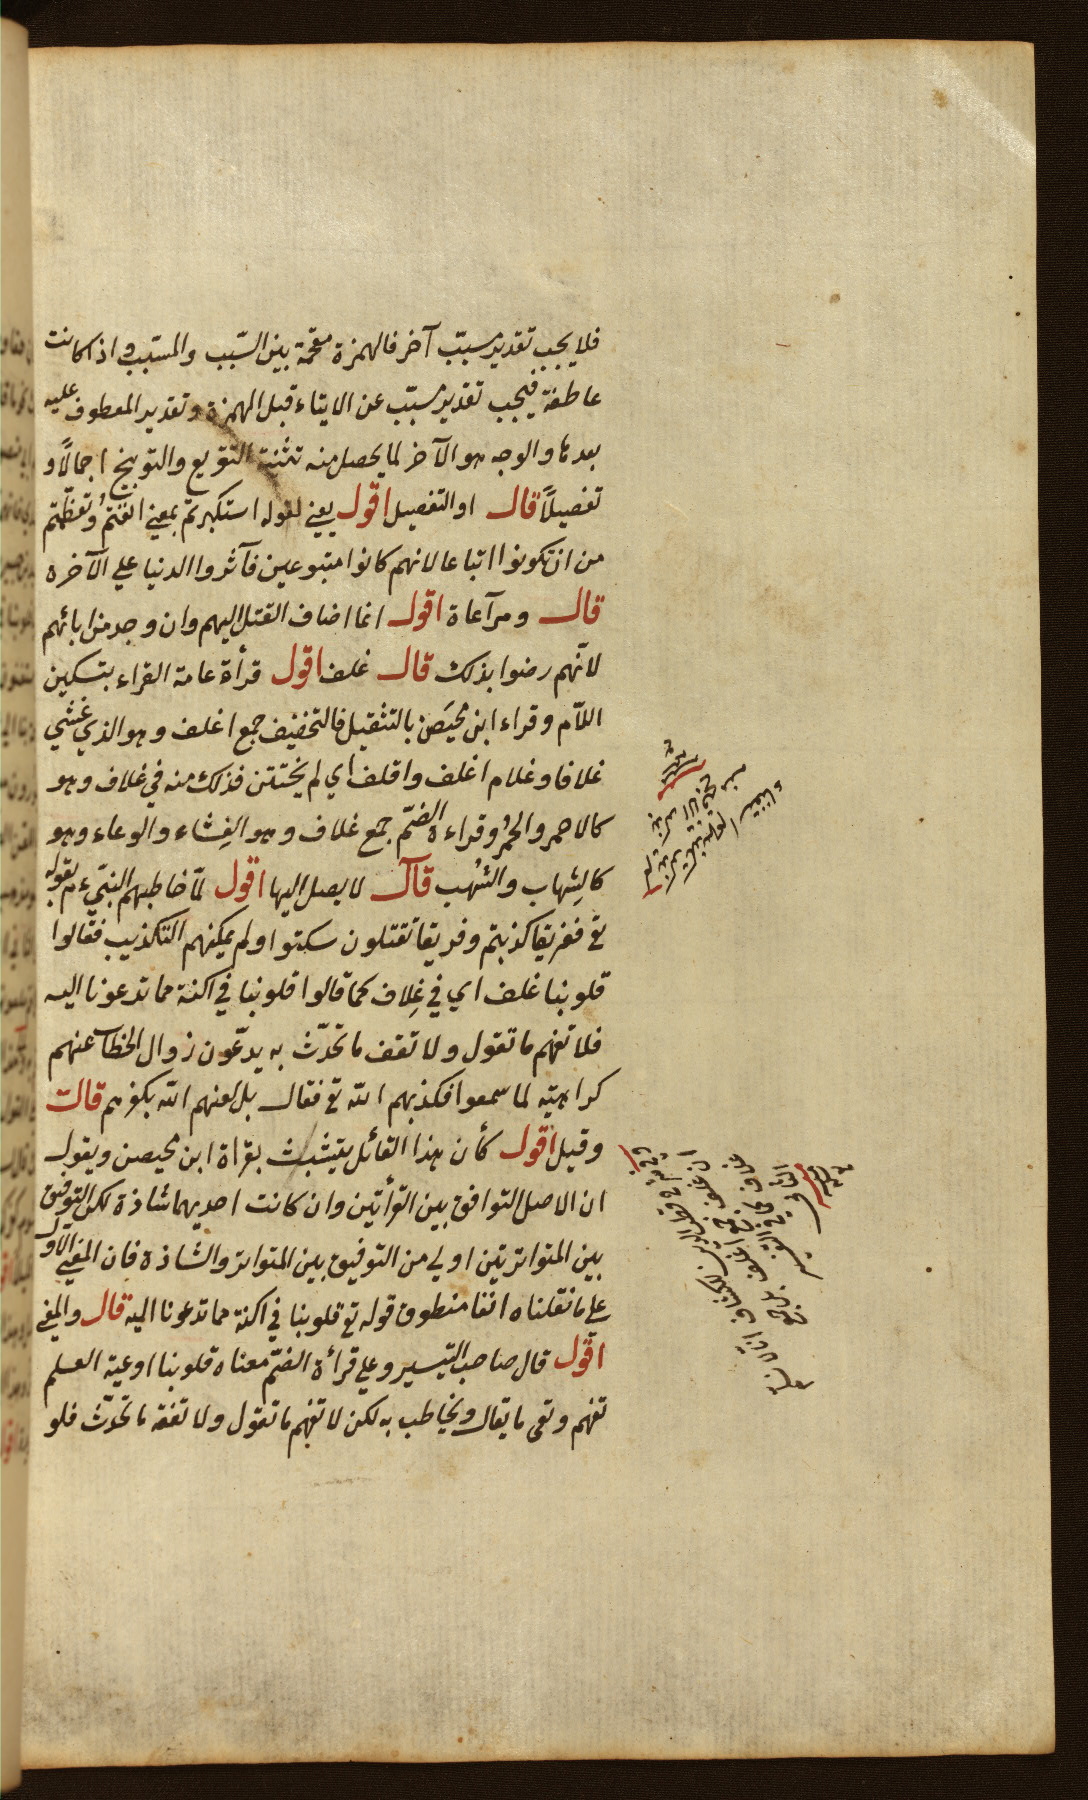 فلا يجب تقدير مسبّب آخر فالهمزة مقحمة بين السّبب والمسبّب واذا كانت
عاطفة فيجب تقدير مسبّب عن الايتاء قبل الهمزة وتقدير المعطوف عليه
بعدها والوجه هو الآخر لما يحصل منه تثنية التقريع والتوبيخ اجمالاً و
تفصيلاً قال او التفصيل اقول يعني لقوله استكبرتم بمعني انفتم وتعظّمتم
من ان تكونوا اتباعا لانهم كانوا متبوعين فآثروا الدنيا علي الآخرة
قال ومراعاة اقول انما اضاف القتل اليهم وان وجد من ابائهم
لانّهم رضوا بذلك قال غلف اقول قرأة عامة القراء بتسكين
اللام وقراء ابن محيَصن بالتثقيل فالتخفيف جمع اغلف وهو الذي غشّي
غلافا وغلام اغلف واقلف اي لم يختتن فذلك منه في غلاف وهو
كالاحمر والحمُر وقراءة الضمّ جمع غلاف وهو الغِشاء والوعاء وهو
كالشِهاب والشُهب قال لا يصل اليها اقول لمّا خاطبهم النبيّ ءم بقوله
تع ففريقا كذبتم وفريقا تقتلون سكتوا ولم يمكنهم التكذيب فقالوا
قلوبنا غلف اي في غِلاف كما قالوا قلوبنا في اكنة مما تدعونا اليه
فلا تفهم ما تقول ولا تقف ما تحدّث به يدّعون زوال الخطاب عنهم
كراهيته لما سمعوا فكذبهم الله تع فقال بل لعنهم الله بكفرهم قالت
وقيل اقول كأن هذا القائل يتشبث بقراة ابن محيصن ويقول
ان الاصل التوافق بين القرأتين وان كانت احديهما شاذة لكن التوفيق
بين المتواترتين اولي من التوفيق بين المتواتر والشاذة فان المعني الاول
علي ما نقلناه انفا منطوق قوله تع قلوبنا في اكنة مما تدعونا اليه قال والمعني
اقول قال صاحب التيسير وعلي قرأة الضمّ معناه قلوبنا اوعية العلم
تفهم وتعي ما يقال ويخاطب به لكن لا تفهم ما تقول ولا تفقه ما تحدّث فلو